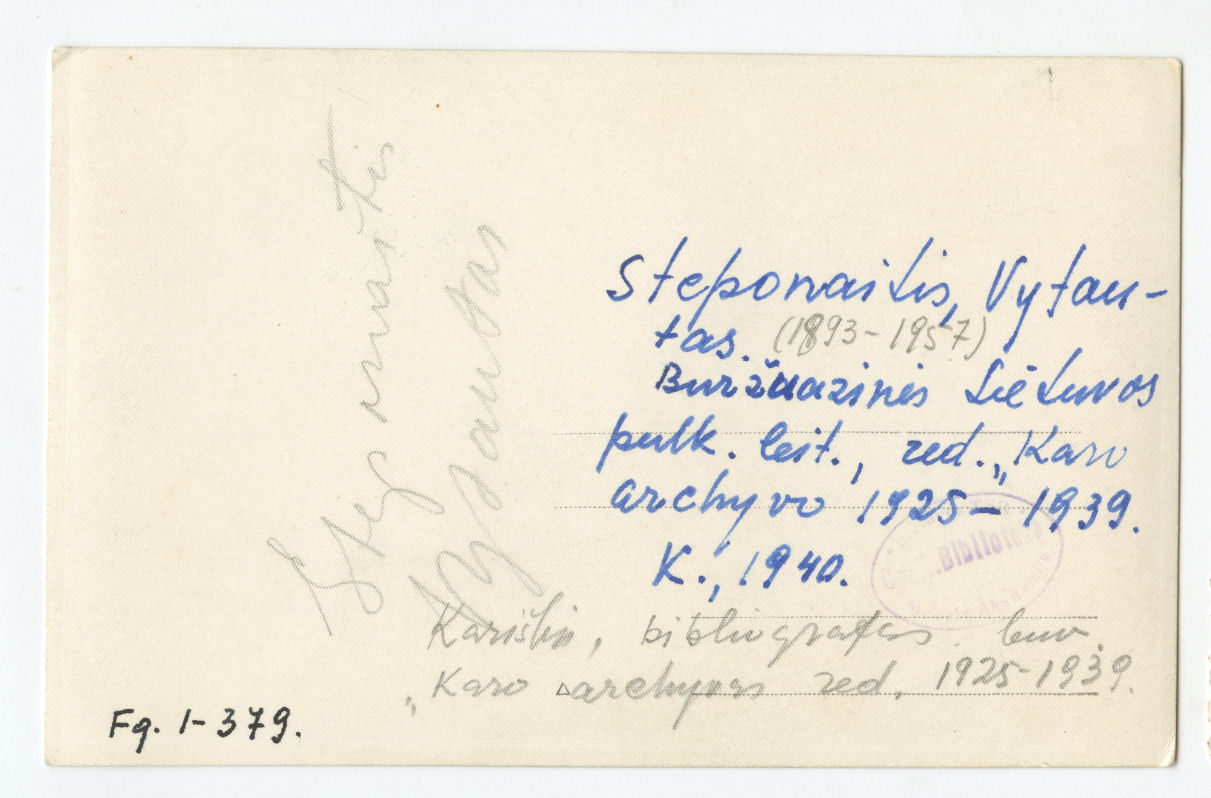 Steponaitis, Vytau-
tas. (1893-1957)
Buržuazinės Lietuvos
pulk. leit., red. „Karo
archyvo 1925– 1939.
K., 1940.
bibliografas buv.
„Karo archyvos red. 1925-1939.
Steponaitis
Vytautas
Biblioteka
Fg. 1-379.